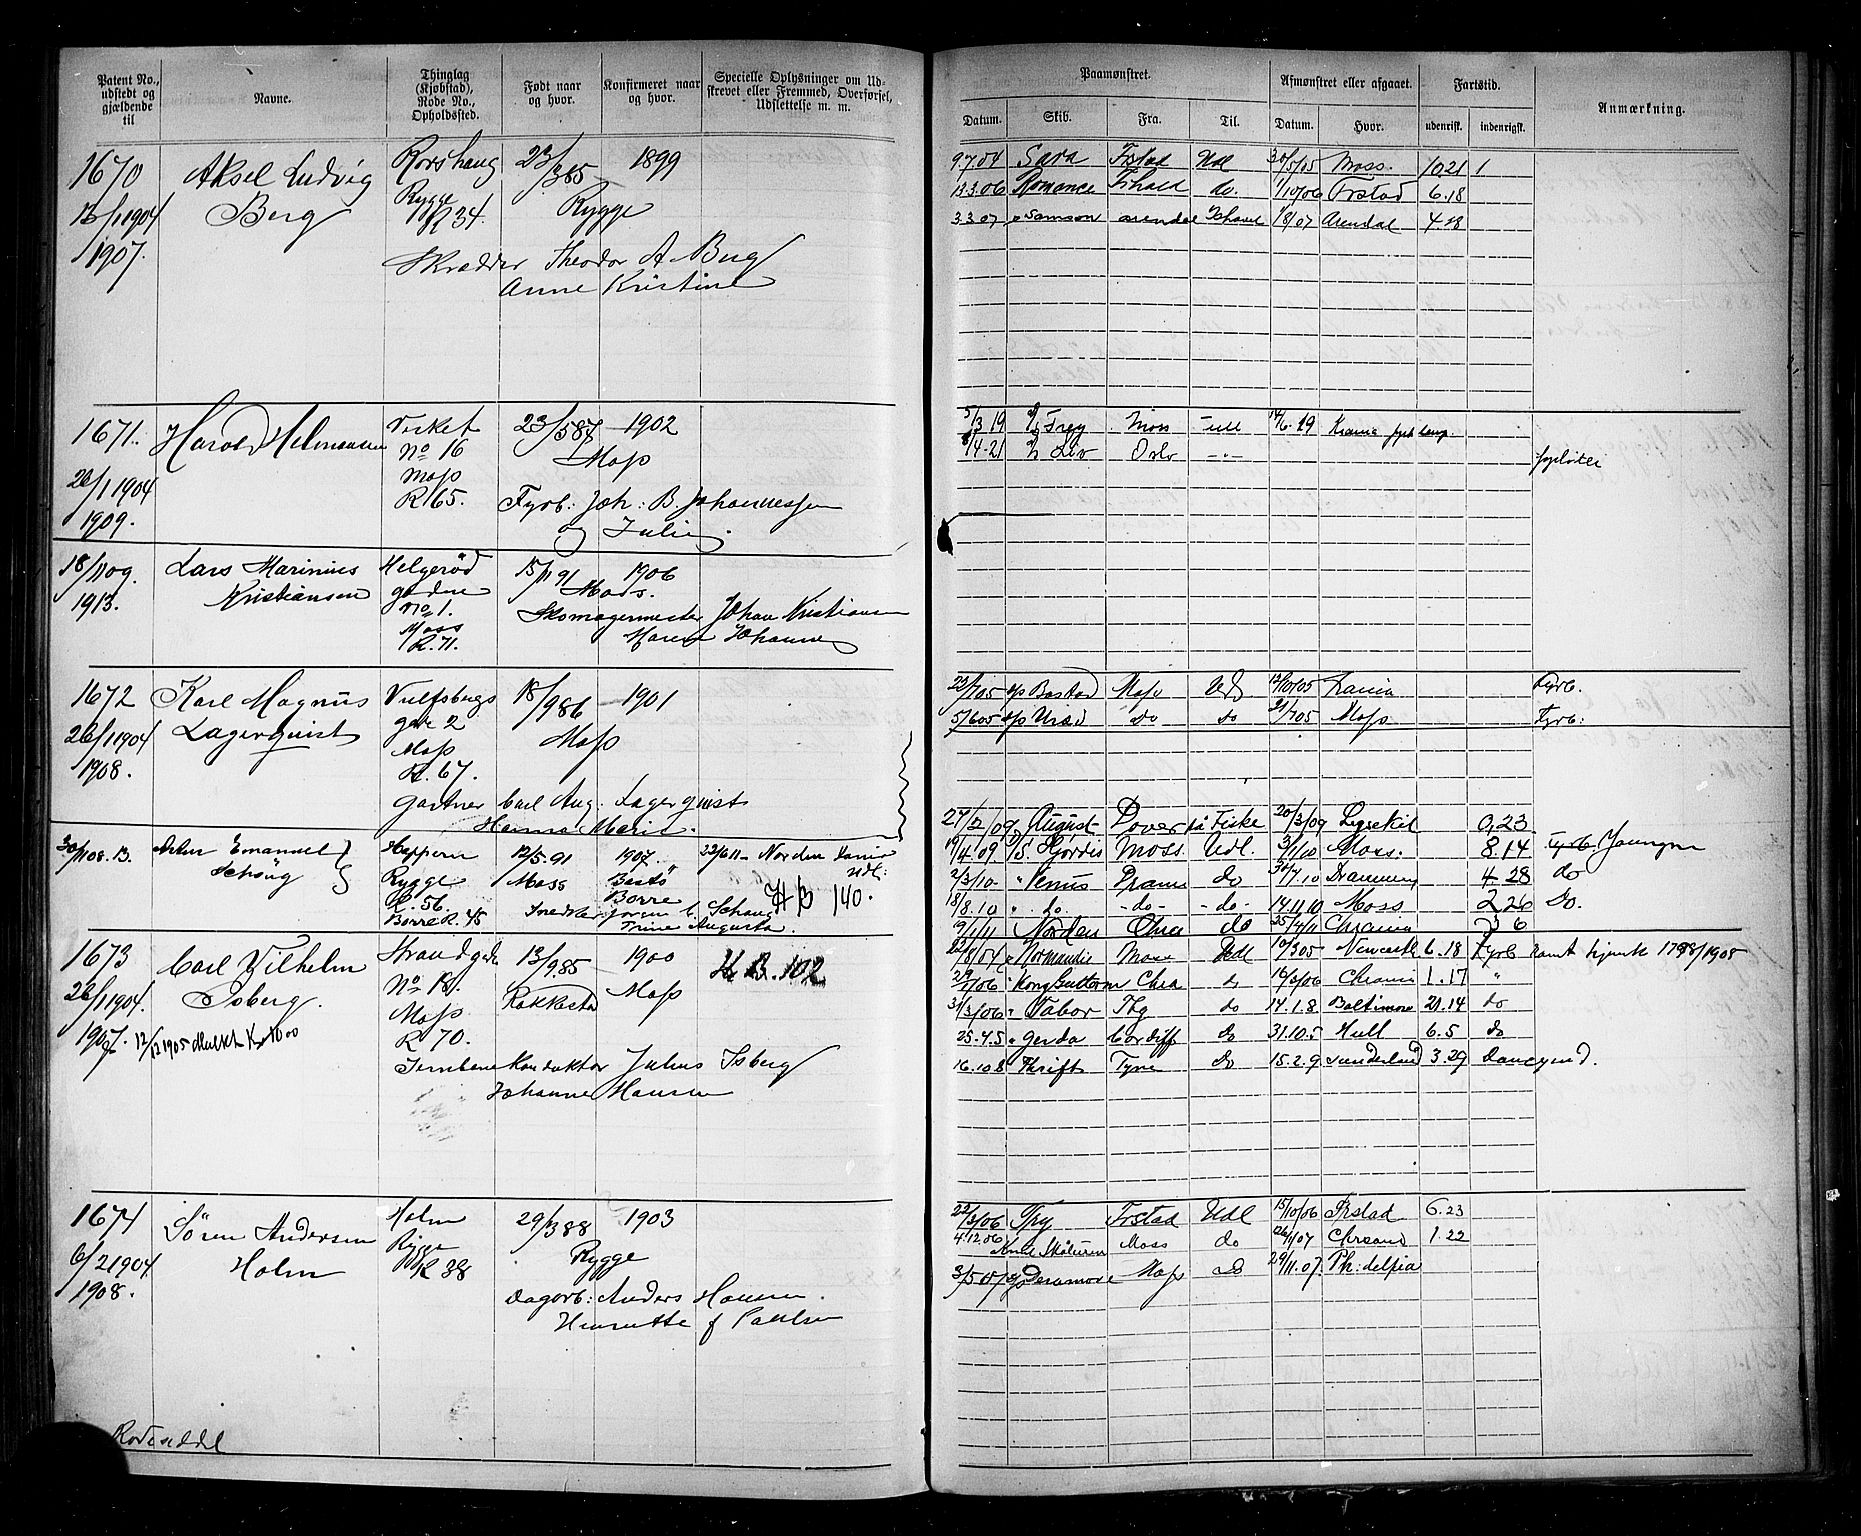 Patent No., udstedt og gjældende til
Navne.
Thinglag (Kjøbstad), Rode No., Opholdssted.
Født naar og hvor.
Konfirmeret naar og hvor.
Specielle Oplysninger om Udskrevet eller Fremmed, Overførsel, Udslettelse m. m.
Paamønstret.
Afmønstret eller afgaaet.
Fartstid.
Anmærkning.
Datum. Skib. Fra. Til. Datum. Hvor. udenrifk. indenrigsk.
1670 Aksel Ludvig Rorshaug 23/385 1899
1904 Berg Rygge R 34. Rygge
1907.
Skrædder Theodor A. Berg
Anne Kristine
9.7.04 Sara Fstad Udl 30/5/05 Moss. 10 21 1
13.3.06 Romance Fhald do. 1/10/06 Frstad 6.18
3.3.07 Samson Arendal 1/8/07 Arendal 4.28
1671. Harold Helmansen Verket 23/587 1902
No 16 Moss
26/1 1904 Moss
1909. R 65. Fyrb: Joh: B. Johannessen
og Julie
5/3 19 Frey Moss Udl 14/6.19 Krania
8/4-21 Liv Oslo -"-
18/11 09. Lars Marinius Helgerød 15/11 91 1906
1913. Kristiansen gaden Moss.
No 1. Skomagermester Johan Kristiansen
Moss Maren Johanne
R. 71.
1672 Karl Magnus Vulfsbergs 18/986 1901
26/1 1904 Lagerquist gate 2 Moss
1908. Moss
R. 67.
Gartner Carl Aug. Lagerquist
Hanna Marie.
22/705 Bastad Moss Udl 12/10/05 Krania Fyrb.
5/605 do do 21/705 Moss Fyrb:
30/1108. 13. Emanuel Heppern 12/5.91 1907. 22/6 11 - Norden Udl:
Schöug Rygge Moss Bastö H B 140.
R. 56. Borre
Borre R. 45 Jörgen C. Schøug
Trine Augusta.
27/2/09 August Dover på Fiske 20/3/09 Lysekil 0,23
19/4 09. Hjørdis Moss. Udl. 3/1/10 Moss. 8.14 Fyrb. Joungm
2/3/10 " Venus Dram do 7.10 Drammen 4.28 do
18/8.10 " do. -do- -do- 14.11.10 Moss 2 26 Do.
9/1/11 Norden Chra do 25/4/11 Chrania 3 6
1673 Carl Vilhelm Strandgd. 13/985 1900 H. B. 102
26/1 1904. Isberg. No 18. Rakkestad Moss
1907. 12/12 1905 Mulkt Kr 1000 Moss
R 70.
Jernbane Konduktør Julius Isberg
Johanne Hansen
22/8/04 Normandie Moss Udl 10/305 Newcastle 6.18 Fyrb 1798/1905
Kong Guttorm Chra do 16/3/06 Chrania 1.17 "
31/3/06 " Tabor Tbg do 14.1.8 Baltimore 21.14 do
25.4.5 " Gerda Cardiff do 31.10.5 Hull 6.5 do
16.10 8 Thrift Tyne do 15.2.9 Sunderland 3.29 Dampqvad.
1674 Søren Andersen Holm 29/3 88 1903
6/2 1904 Holm Rygge Rygge
1908. R 38
Dagarb: Anders Hansen.
Henriette f Paulsen
22/3/06 Try Frstad Udl 15/10/06 Frstad 6.23
4.12.06 Moss do 26/1/07 Chrsand 1.22
3/5 07 Deramore Moss do 29/11.07. Ph:delfia
Rodeseddel